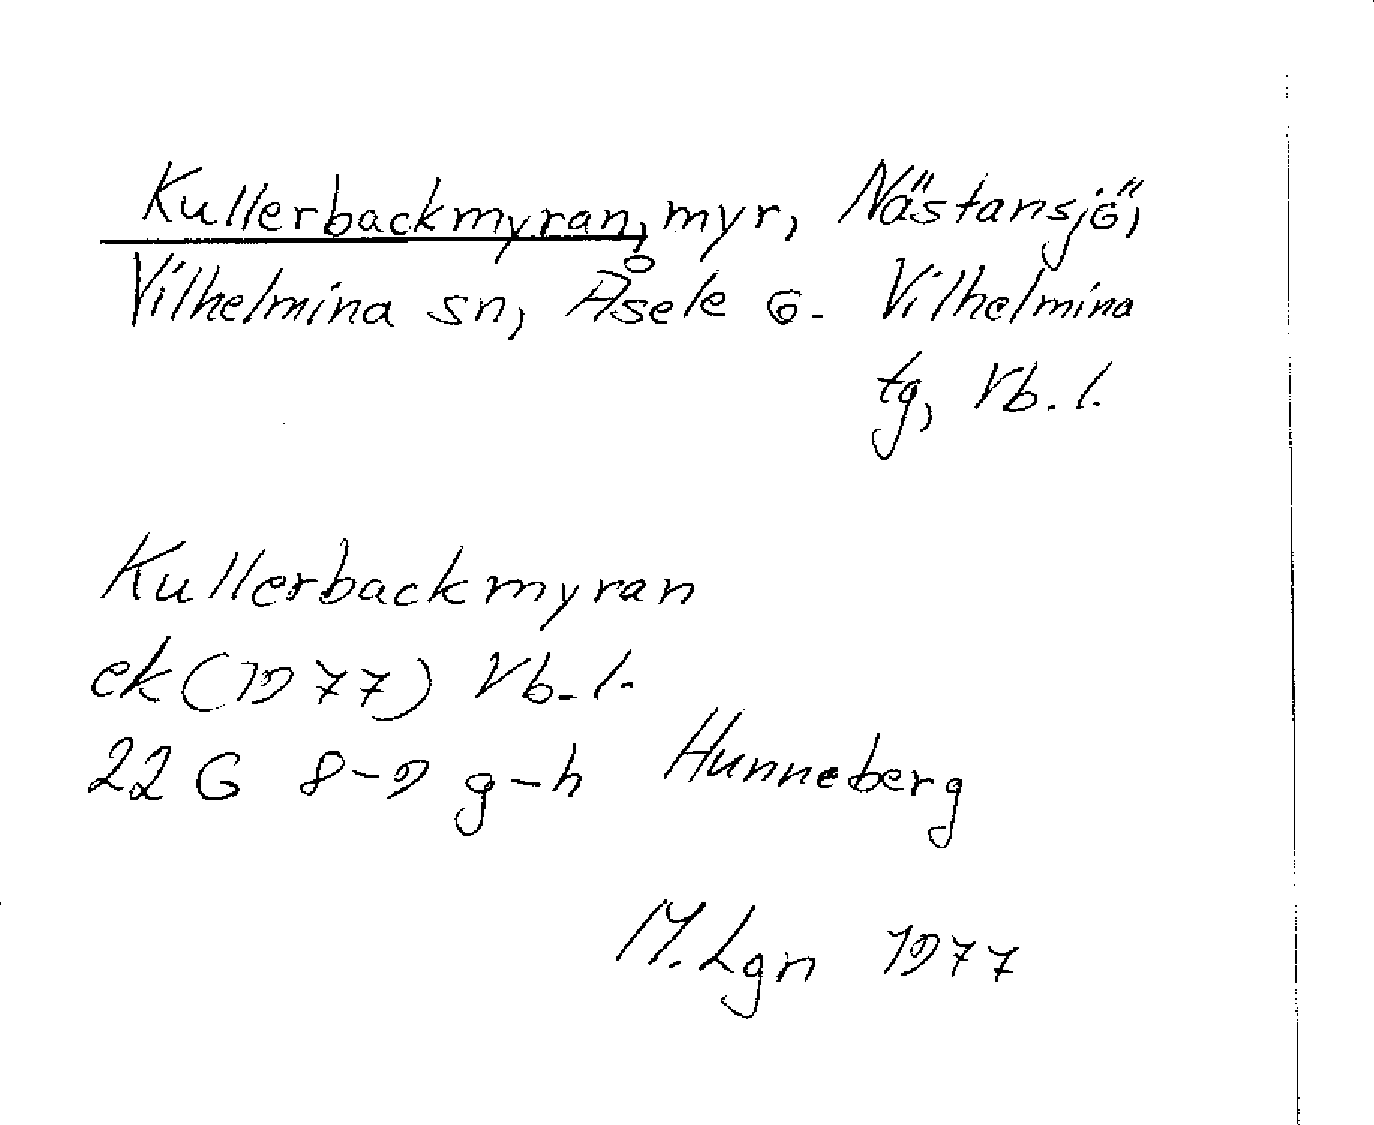 Kullerbackmyran, myr, Nästansjö,
Vilhelmina sn, Åsele 6. Vilhelmina
tg, Vb. l.
Kullerbackmyran
ek (1977) Vb. l.
22 G 8-9 g-h Hunneberg
M. Lgn 1977